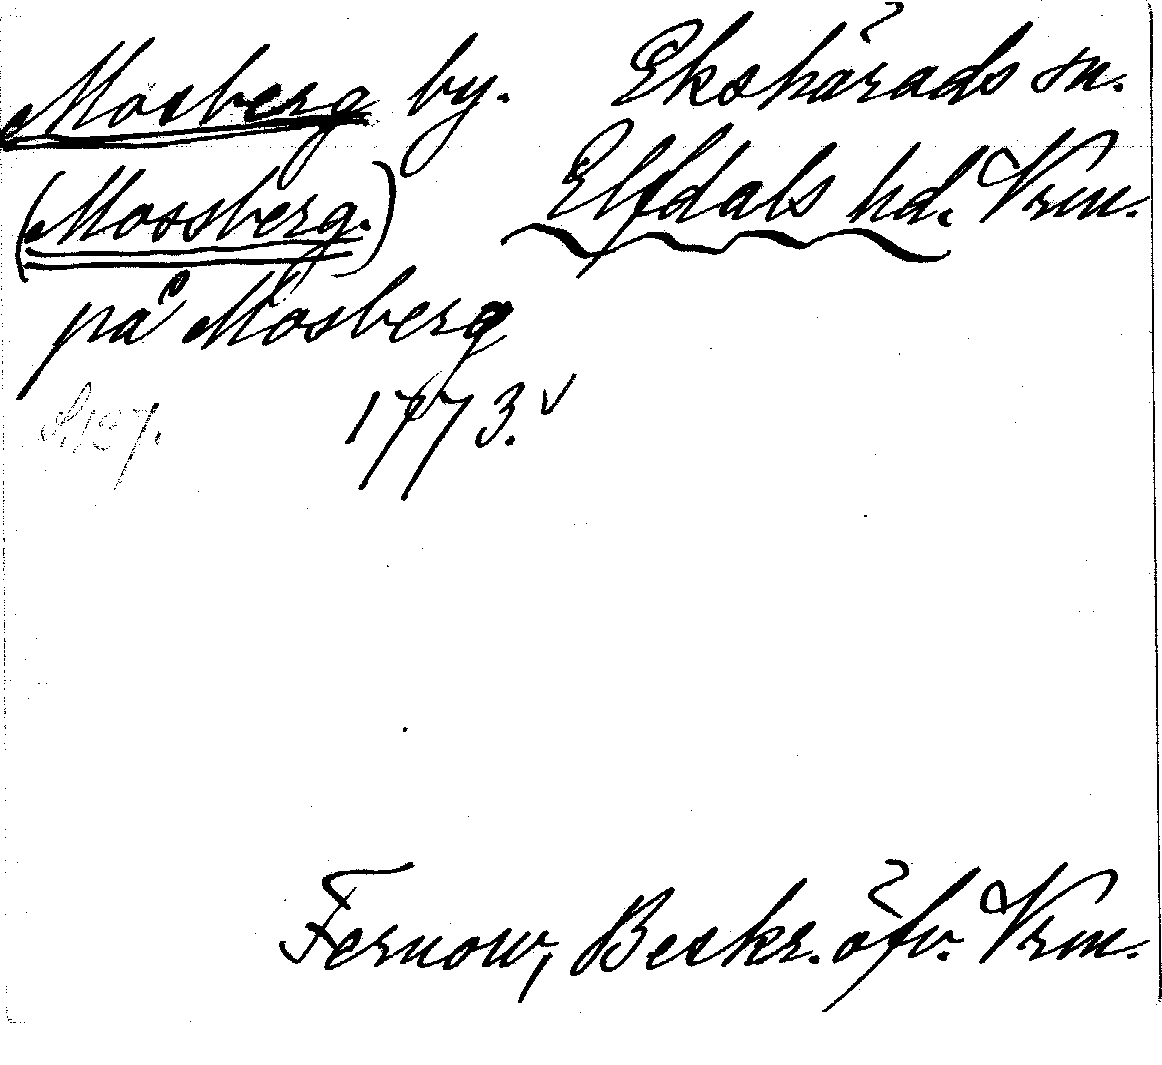 Mosberg by. Ekshärads sn.
(Mossberg.) Elfdals hd. Vrm.
på Mosberg
S. 137. 1773.
Fernow, Beskr. öfv. Vrm.